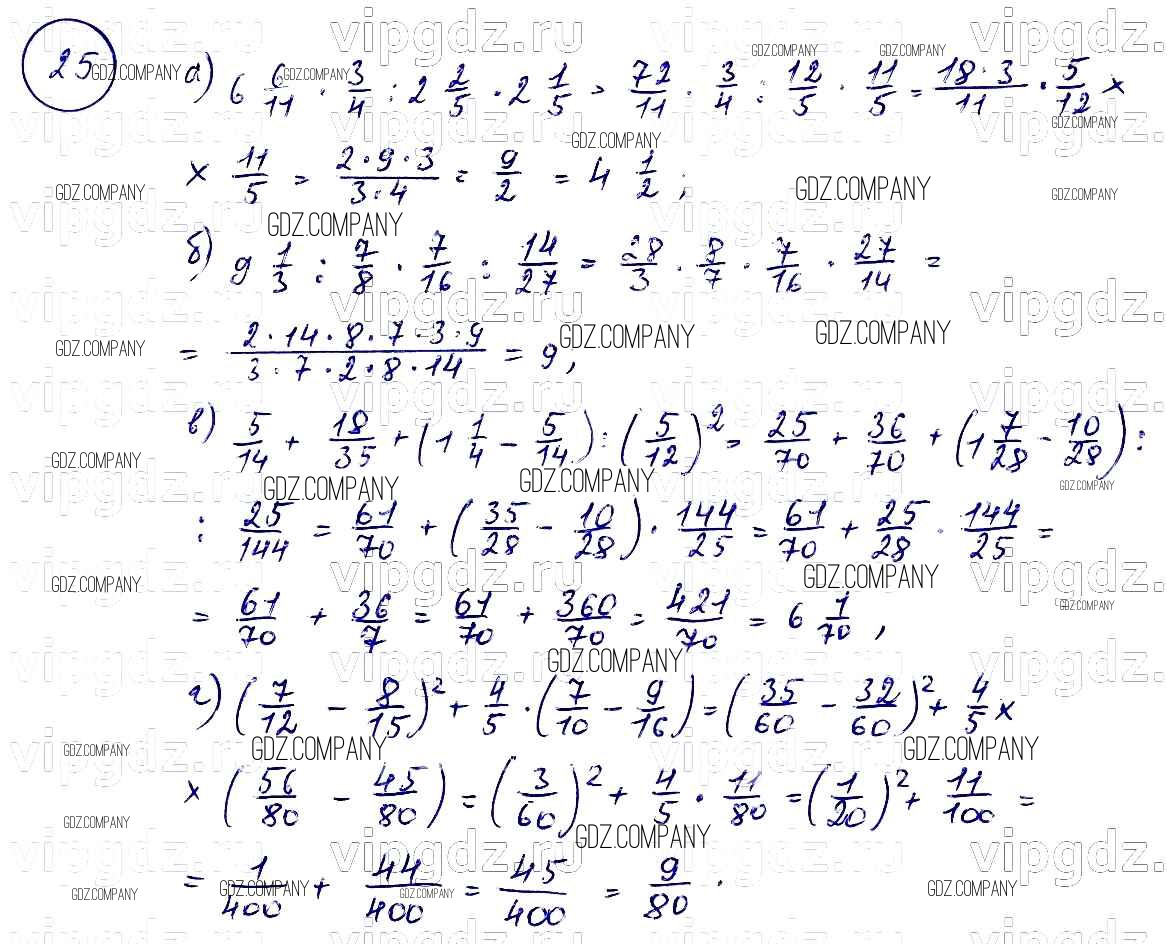 25 а) 6 6/11 · 3/4 : 2 2/5 · 2 1/5 = 72/11 · 3/4 : 12/5 · 11/5 = 18·3/11 · 5/12 ×
× 11/5 = 2·9·3/3·4 = 9/2 = 4 1/2 ;
б) 9 1/3 : 7/8 · 7/16 : 14/27 = 28/3 · 8/7 · 7/16 · 27/14 =
= 2·14·8·7·3·9/3·7·2·8·14 = 9,
в) 5/14 + 18/35 + (1 1/4 - 5/14) : (5/12)² = 25/70 + 36/70 + (1 7/28 - 10/28) :
: 25/144 = 61/70 + (35/28 - 10/28) · 144/25 = 61/70 + 25/28 · 144/25 =
= 61/70 + 36/7 = 61/70 + 360/70 = 421/70 = 6 1/70 ,
г) (7/12 - 8/15)² + 4/5 · (7/10 - 9/16) = (35/60 - 32/60)² + 4/5 ×
× (56/80 - 45/80) = (3/60)² + 4/5 · 11/80 = (1/20)² + 11/100 =
= 1/400 + 44/400 = 45/400 = 9/80 .
GDZ.COMPANY
vipgdz.ru